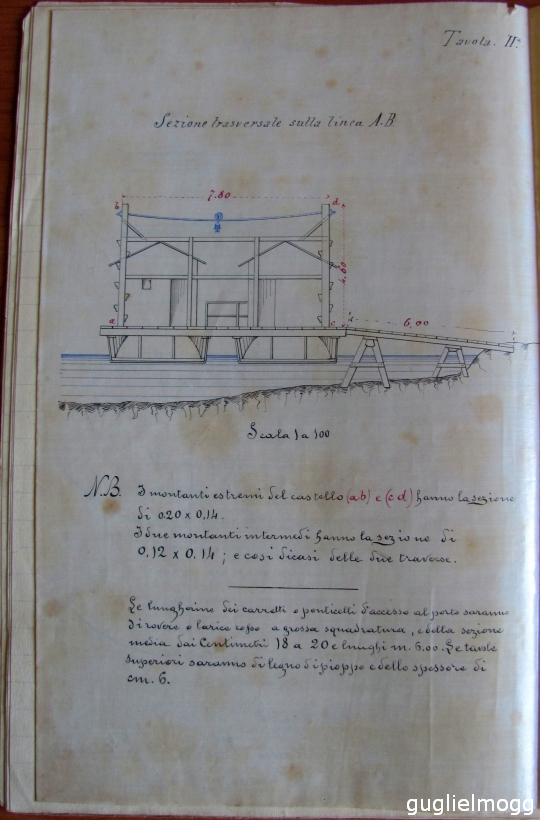 Tavola. II.
Sezione trasversale sulla linea A.B
7.80
b
d
4.60
6,00
a
c
Scala 1 a 100
N.B. I montanti estremi del castello (ab) e (cd) hanno la sezione
di 0.20 x 0.14.
I due montanti intermedi hanno la sezione di
0.12 x 0.14; e così dicasi delle due traverse.
Le lungherine dei carretti o ponticelli d'accesso al porto saranno
di rovere o larice rosso a grossa squadratura, e della sezione
media dai Centimetri 18 a 20 e lunghi m. 6.00. Le tavole
superiori saranno di legno di pioppo e dello spessore di
cm. 6.
guglielmogg